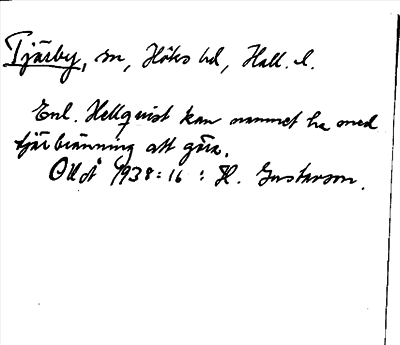 Tjärby, sn, Höks hd, Hall. l.
Enl. Hellquist kan namnet ha med
tjärbränning att göra.
OUÅ 1938:16 : H. Gustavson.